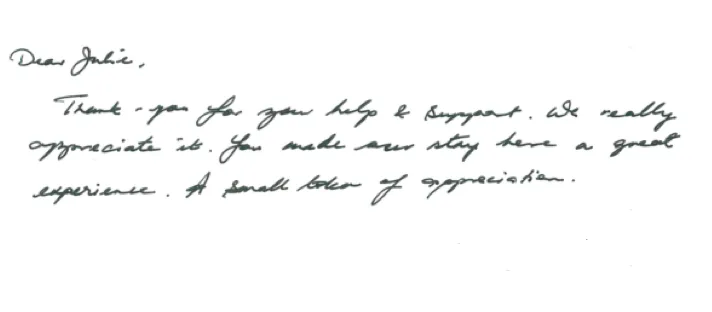 Dear Julie,
Thank-you for your help & support. We really
appreciate it. You made our stay here a great
experience. A small token of appreciation.